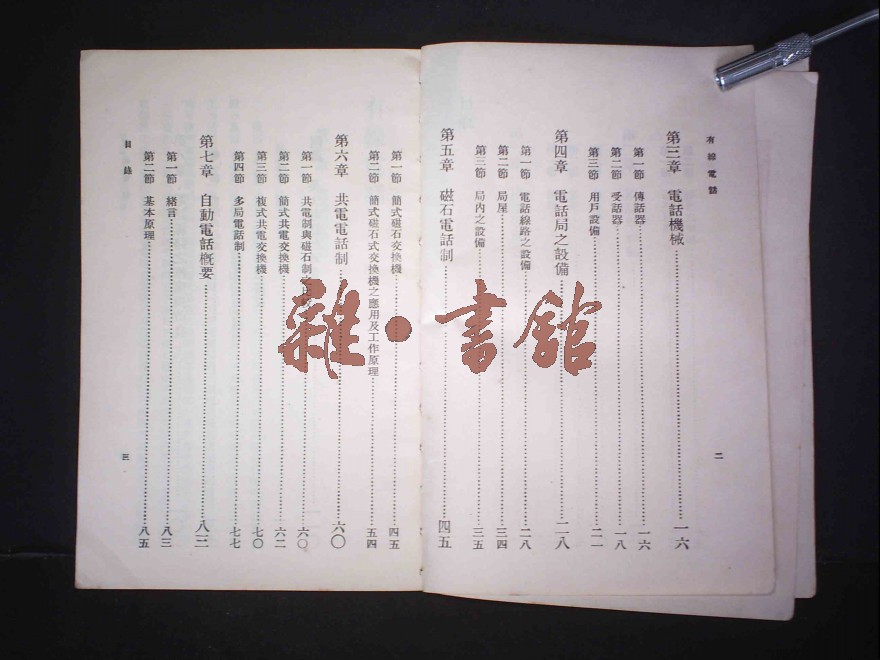 有線電話
第三章 電話機械 一六
第一節 傳話器 一六
第二節 受話器 一八
第三節 用戶設備 二一
第四章 電話局之設備 二八
第一節 電話線路之設備 二八
第二節 局屋 三四
第三節 局內之設備 三五
第五章 磁石電話制 四五
二
第一節 簡式磁石交換機 四五
第二節 簡式磁石式交換機之應用及工作原理 五四
第六章 共電電話制 六〇
第一節 共電制與磁石制之 六〇
第二節 簡式共電交換機 六二
第三節 複式共電交換機 七〇
第四節 多局電話制 七七
第七章 自動電話概要 八三
第一節 緒言 八三
第二節 基本原理 八五
目錄
三
雜·書館